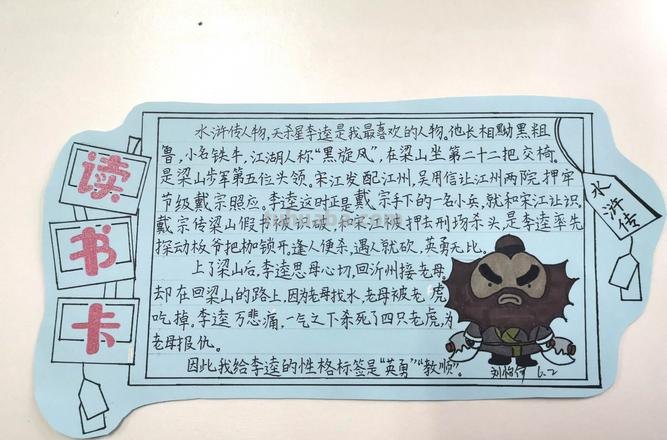 读
书
卡
水浒传
水浒传人物，天杀星李逵是我最喜欢的人物。他长相黝黑粗
鲁，小名铁牛，江湖人称“黑旋风”，在梁山坐第二十二把交椅。
是梁山步军第五位头领。宋江发配江州，吴用信让江州两院押牢
节级戴宗照应。李逵这时正是戴宗手下的一名小兵，就和宋江认识。
戴宗传梁山假书被识破，和宋江被押去刑场杀头，是李逵率先
探动板斧把枷锁开。逢人便杀，遇人就砍，英勇无比。
上了梁山后，李逵思母心切，回沂州接老母。
却在回梁山的路上，因为老母找水，老母被老虎
吃掉。李逵万悲痛，一气之下杀死了四只老虎，为
老母报仇。
因此我给李逵的性格标签是“英勇”“孝顺”。
6.2